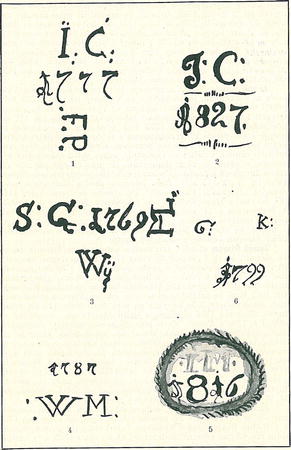 I. C.
1777
F.P.
1
J: C:
1827.
2
S: G: 1769
W
3
G: K:
1799
6
1787
:WM:
4
1816
5